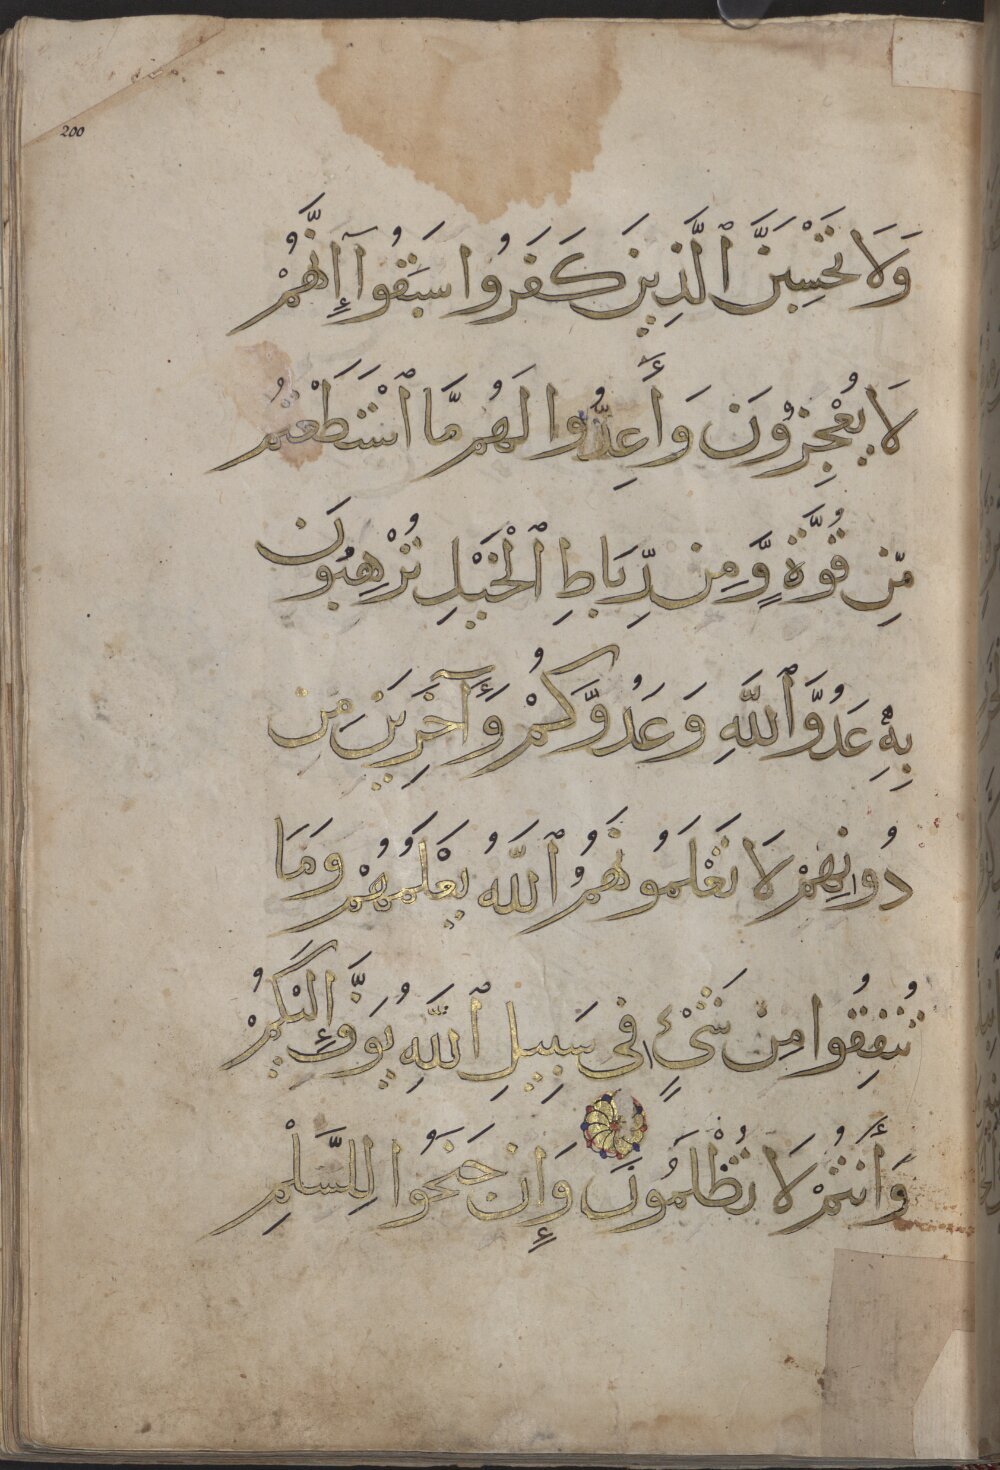 200
وَلَا تَحْسِبَنَّ ٱلَّذِينَ كَفَرُوا سَبَقُوآ إِنَّهُمْ
لَا يُعْجِزُونَ وَأَعِدُّوا لَهُم مَّا ٱسْتَطَعْتُم
مِّن قُوَّةٍ وَّمِن رِّبَاطِ ٱلْخَيْلِ تُرْهِبُونَ
بِهِۦ عَدُوَّ ٱللَّهِ وَعَدُوَّكُمْ وَآخَرِينَ مِن
دُونِهِمْ لَا تَعْلَمُونَهُمُ ٱللَّهُ يَعْلَمُهُمْ وَمَا
تُنفِقُوا مِن شَىْءٍ فِى سَبِيلِ ٱللَّهِ يُوَفَّ إِلَيْكُمْ
وَأَنتُمْ لَا تُظْلَمُونَ وَإِن جَنَحُوا لِلسَّلْمِ